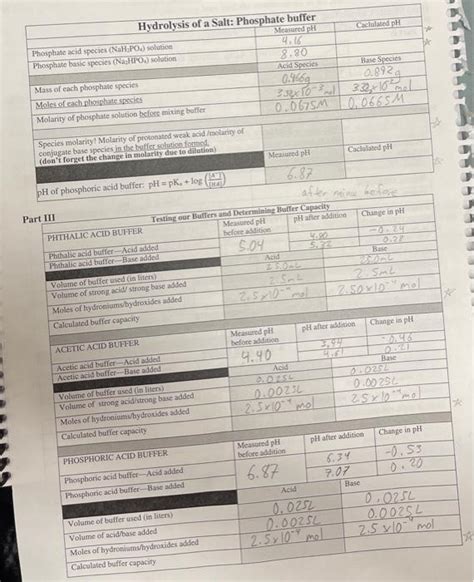 Hydrolysis of a Salt: Phosphate buffer
Measured pH Caclulated pH
Phosphate acid species (NaH₂PO₄) solution 4.16
Phosphate basic species (Na₂HPO₄) solution 8.80
Acid Species Base Species
Mass of each phosphate species 0.466g 0.892g
Moles of each phosphate species
Molarity of phosphate solution before mixing buffer 0.0675M 0.0665M
Species molarity! Molarity of protonated weak acid /molarity of
conjugate base species in the buffer solution formed.
(don't forget the change in molarity due to dilution)
Measured pH Caclulated pH
pH of phosphoric acid buffer: pH = pKₐ + log 6.87
after minus before
Part III
Testing our Buffers and Determining Buffer Capacity
PHTHALIC ACID BUFFER Measured pH before addition pH after addition Change in pH
Phthalic acid buffer—Acid added 5.04 4.80 -0.24
Phthalic acid buffer—Base added 5.32 0.28
Acid Base
Volume of buffer used (in liters) 25.0mL 25.0mL
Volume of strong acid/ strong base added 2.5mL 2.5mL
Moles of hydroniums/hydroxides added 2.5x10⁻⁴ mol 2.50x10⁻⁴ mol
Calculated buffer capacity
ACETIC ACID BUFFER Measured pH before addition pH after addition Change in pH
Acetic acid buffer—Acid added 4.40 3.94 -0.46
Acetic acid buffer—Base added 4.61 0.21
Acid Base
Volume of buffer used (in liters) 0.025L 0.025L
Volume of strong acid/strong base added 0.0025L 0.0025L
Moles of hydroniums/hydroxides added 2.5x10⁻⁴ mol 2.5x10⁻⁴ mol
Calculated buffer capacity
PHOSPHORIC ACID BUFFER Measured pH before addition pH after addition Change in pH
Phosphoric acid buffer—Acid added 6.87 6.34 -0.53
Phosphoric acid buffer—Base added 7.07 0.20
Acid Base
Volume of buffer used (in liters) 0.025L 0.025L
Volume of acid/base added 0.0025L 0.0025L
Moles of hydroniums/hydroxides added 2.5x10⁻⁴ mol 2.5x10⁻⁴ mol
Calculated buffer capacity